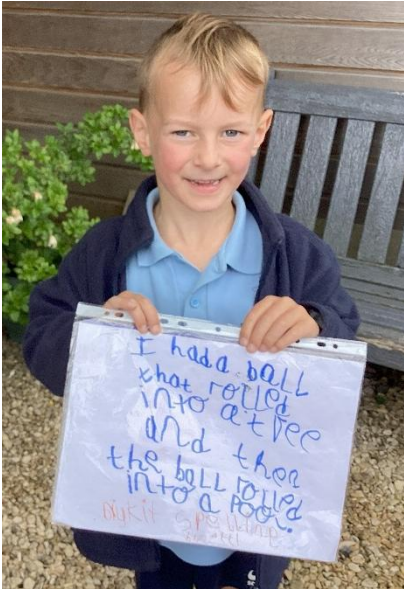 I had a ball
that rolled
into a tree
and then
the ball rolled
into a pool.